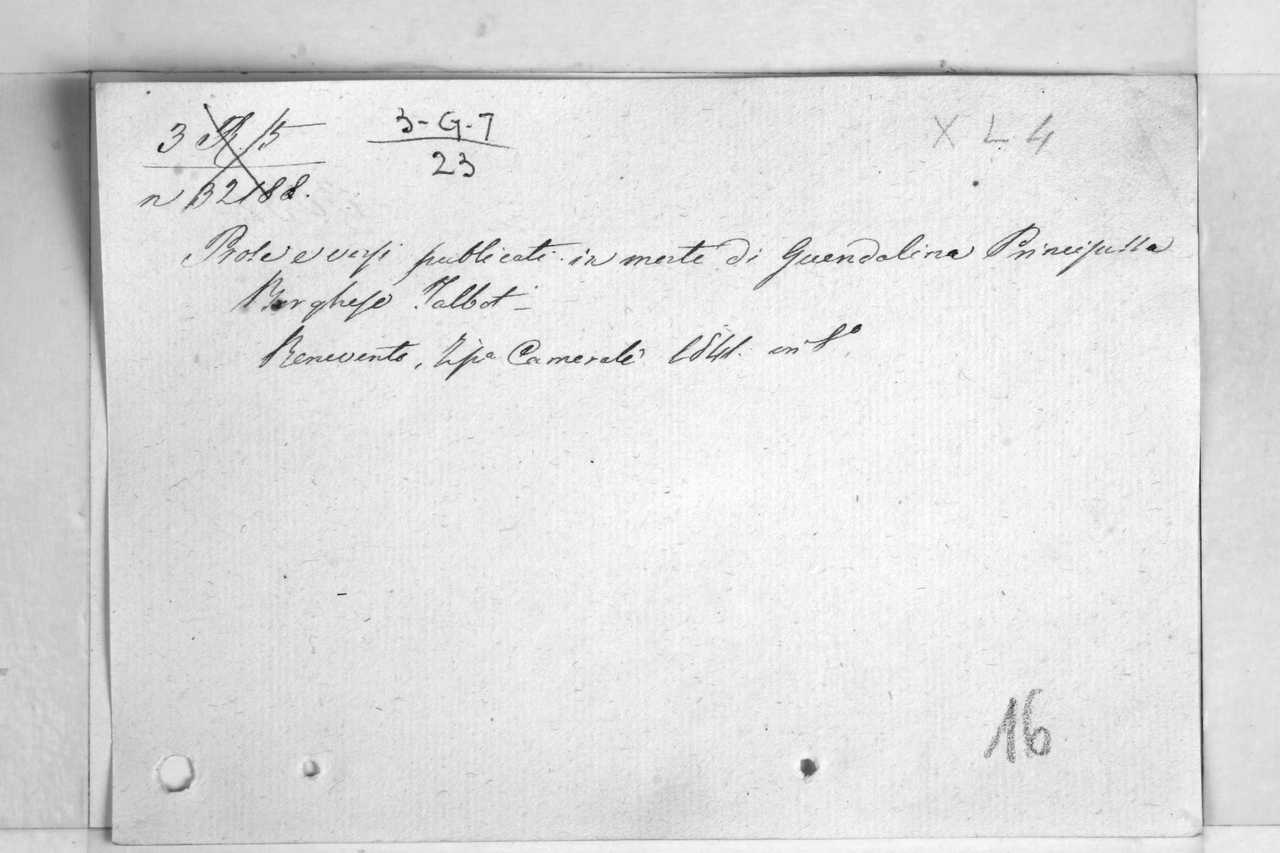 3 R. 15
n 32188.
3-G-7
23
X L 4
Prose e versi publicati in morte di Guendalina Principessa
Borghese Talbot -
Benevento, Tip.a Camerale 1841. in 8.°
16